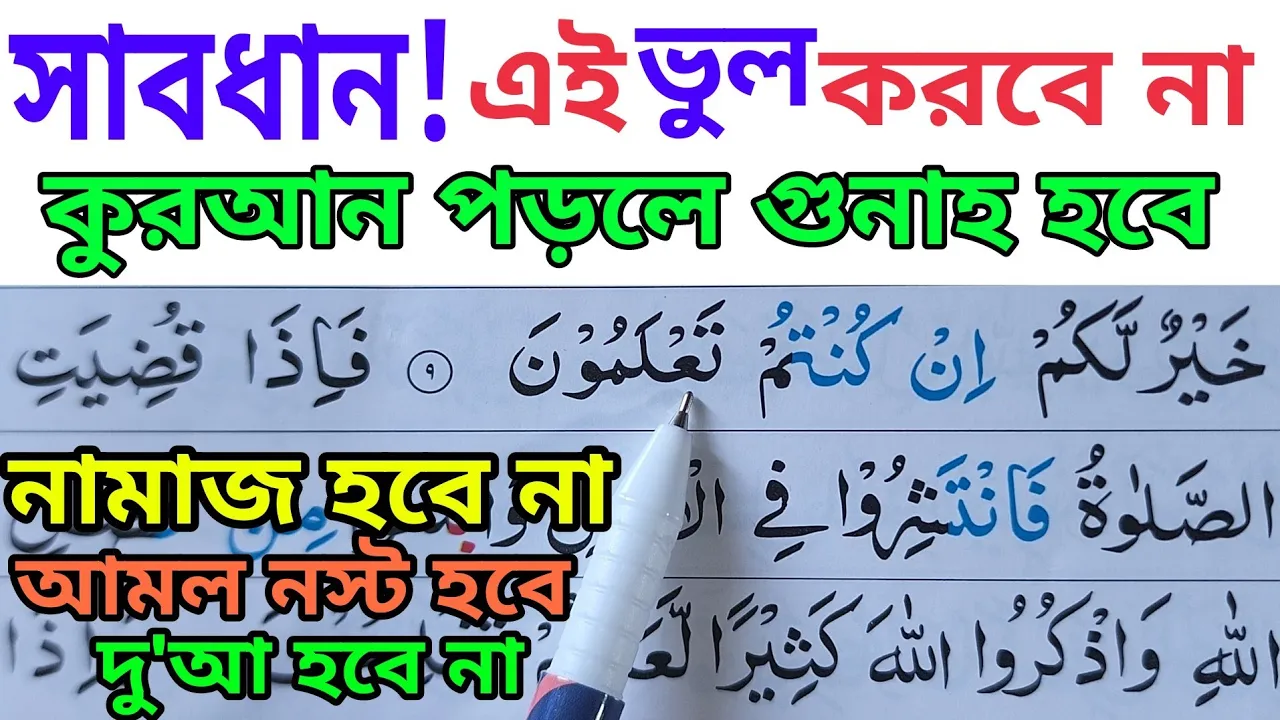 সাবধান! এই ভুল করবে না
কুরআন পড়লে গুনাহ হবে
خَيْرٌ لَّكُمْ اِنْ كُنْتُمْ تَعْلَمُوْنَ ۹ فَاِذَا قُضِيَتِ
الصَّلٰوةُ فَانْتَشِرُوْا فِي
নামাজ হবে না
আমল নস্ট হবে
দু'আ হবে না
اللّٰهِ وَاذْكُرُوا اللّٰهَ كَثِيْرًا